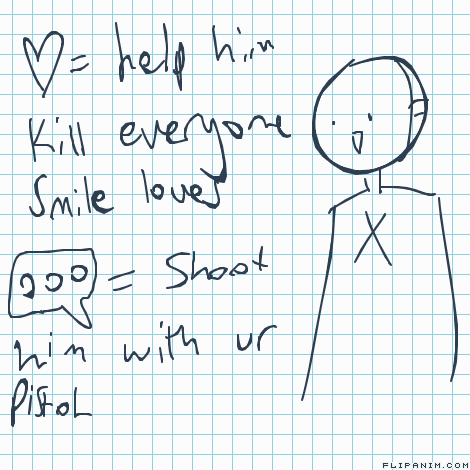 = help him
Kill everyone
Smile loves
= Shoot
him with ur
Pistol
FLIPANIM.COM